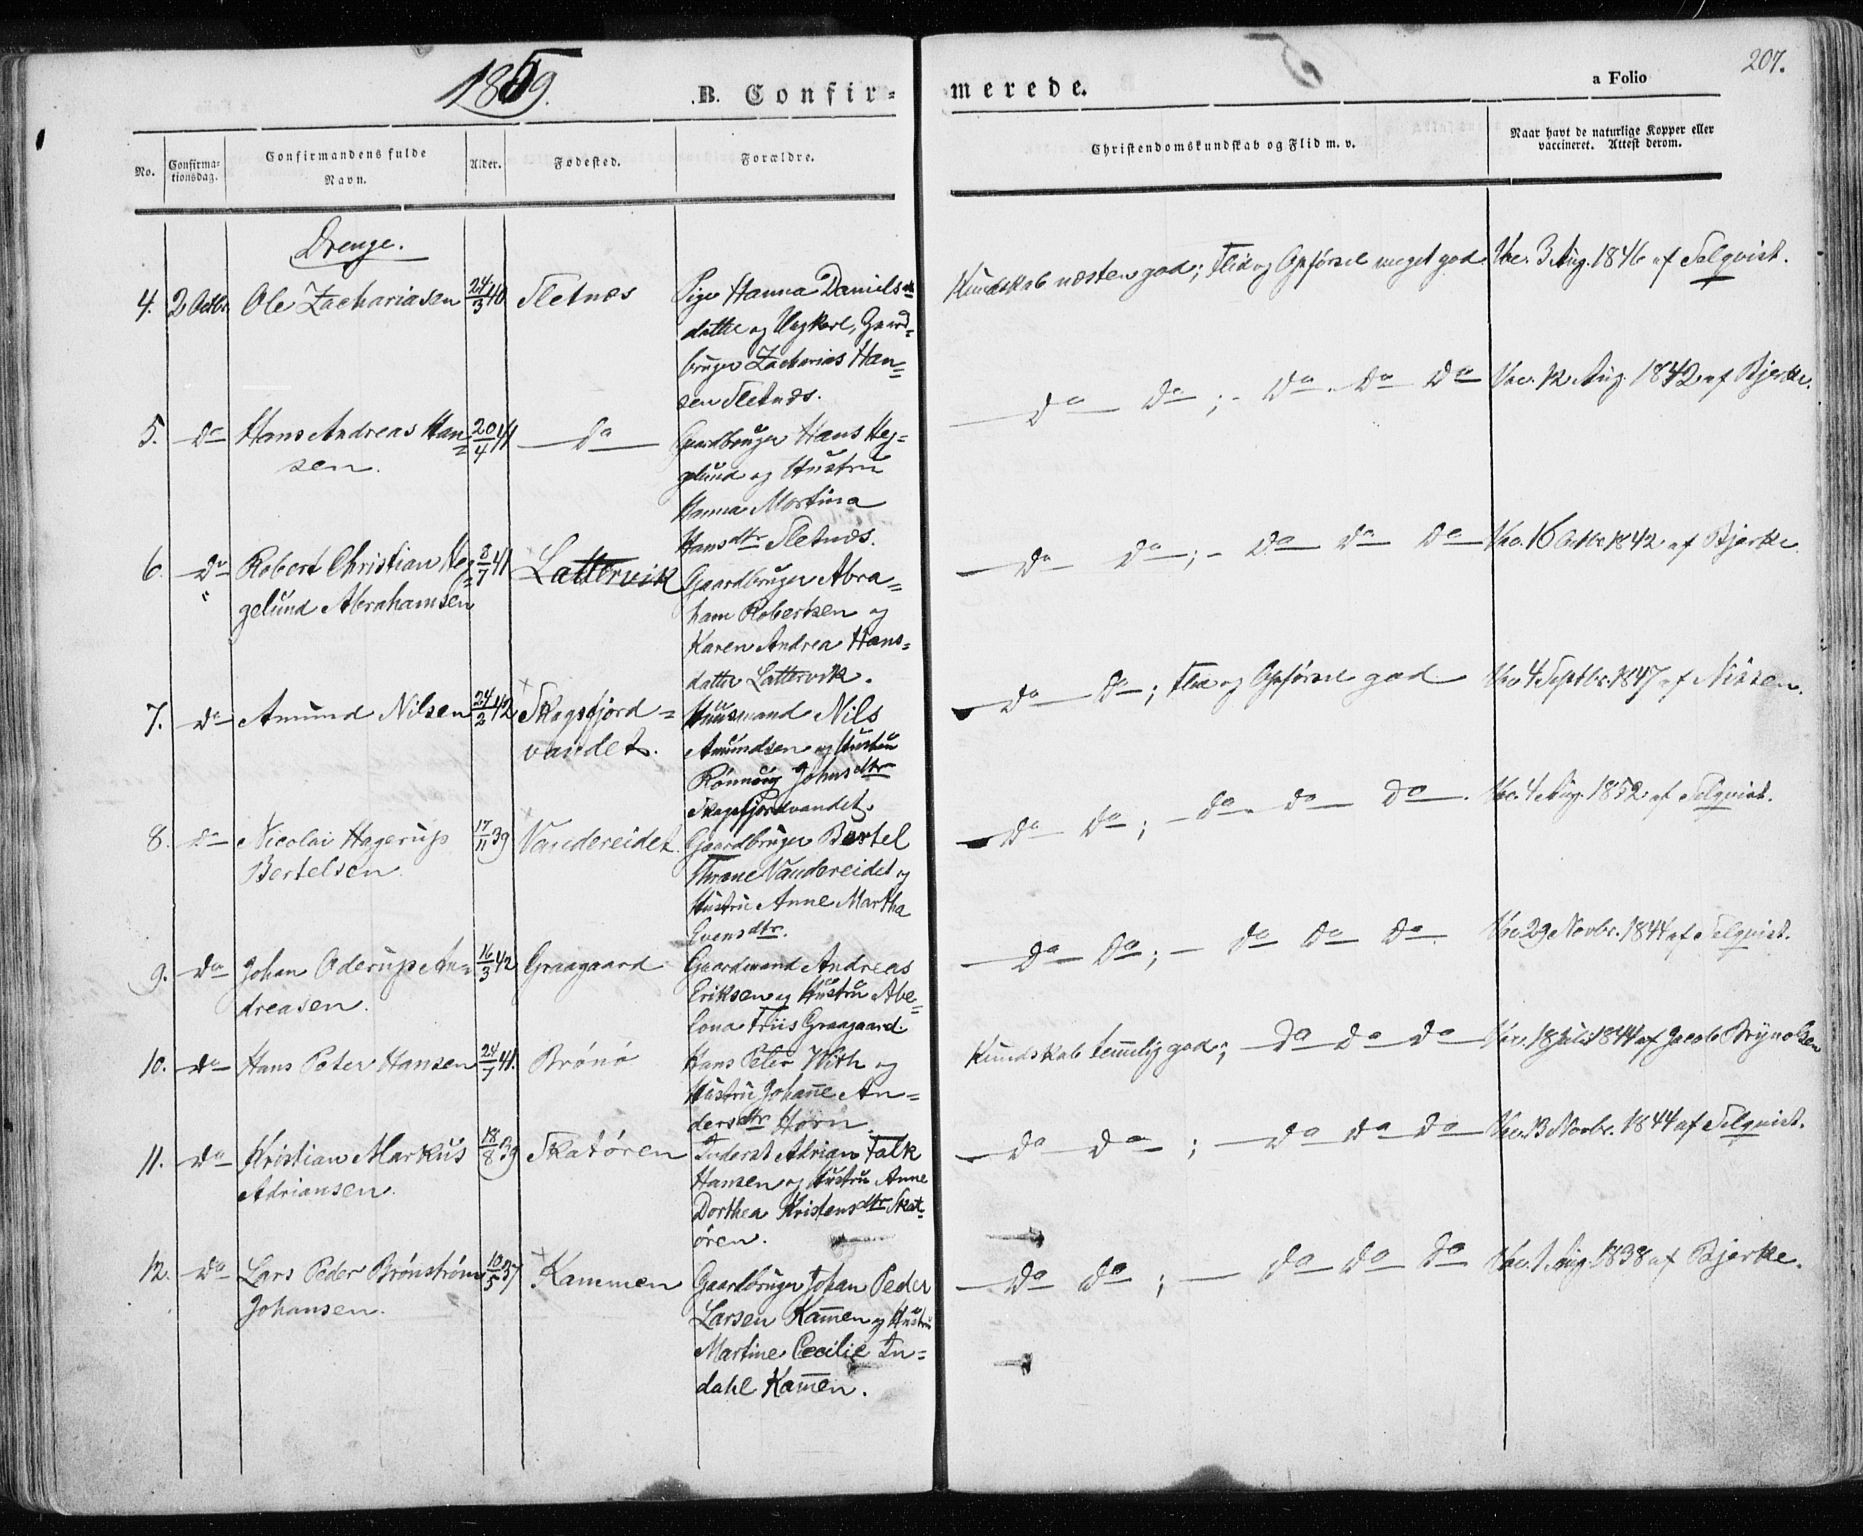 1859.
B. Confir-
merede.
a Folio
207.
No.
Confirma-
tionsdag.
Confirmandens fulde
Navn.
Alder.
Fødested.
Forældre.
Christendomskundskab og Flid m. v.
Naar havt de naturlige Kopper eller
vaccineret. Attest derom.
Drenge.
4. 2 Octbr. Ole Zachariasen 24/3 40 Sletnæs
Pige Hanna Daniels
datter og Ungkarl, Gaard-
bruger Zacharias Han=
sen Sletnæs.
Kundskab næsten god; Flid og Opførsel meget god
Vac. 3 Aug. 1846 af Selqvist.
5. do Hans Andreas Han=
sen. 20/4 41 do
Gaardbruger Hans Heg=
gelund og Hustru
Hanna Martina
Hansdtr Sletnæs.
do do ; - do do do
Vac. 12 Aug. 1842 af Bjerke.
6. do Robert Christian He=
gelund Abrahamsen 8/7 41 Lattervik
Gaardbruger Abra=
ham Robertsen og
Karen Andrea Hans=
datter Lattervik.
do do ; - do do do
Vac. 16 Octbr 1842 af Bjerke.
7. do Amund Nilsen 24/2 42 Skogsfjord=
vandet.
Huusmand Nils
Amundsen og Hustru
Rønnøug Johnsdtr
Skogsfjordvandet.
do do ; Flid og Opførsel god
Vac 4 Septbr. 1847 af Nissen.
8. do Nicolai Hagerup
Bertelsen 17/11 39 Vandereidet.
Gaardbruger Bertel
Thrane Vandereidet og
Hustru Anne Martha
Evensdtr.
do do ; - do do do
Vac. 4 Aug. 1852 af Selqvist.
9. do Johan Oderup An=
dreasen. 16/3 42 Graagaard
Gaardmand Andreas
Eriksen og Hustru Abe=
lona Friis Graagaard.
do do ; - do do do
Vac 29 Novbr. 1844 af Selqvist.
10. do Hans Peter Hansen 24/7 41. Brønø
Hans Peter With og
Hustru Johanne An=
dersdtr Hørn
Kundskab temmelig god; do do do
Vac. 18 Juli 1844 af Jacob Brynolsen
11. do Kristian Markus
Adriansen. 18/8 39 Skatøren
Inderst Adrian Falk
Hansen og Hustru Anne
Dorthea Kristensdtr Skat-
øren.
do do ; - do do do
Vac. 13 Novbr. 1844 af Selqvist.
12. do Lars Peder Brønstrøm
Johansen. 10/5 37 Kammen
Gaardbruger Johan Peder
Larsen Kammen og Hustru
Martine Cecilie In=
dahl Kammen.
do do ; - do do do
Vac. 1 Aug. 1838 af Bjerke.